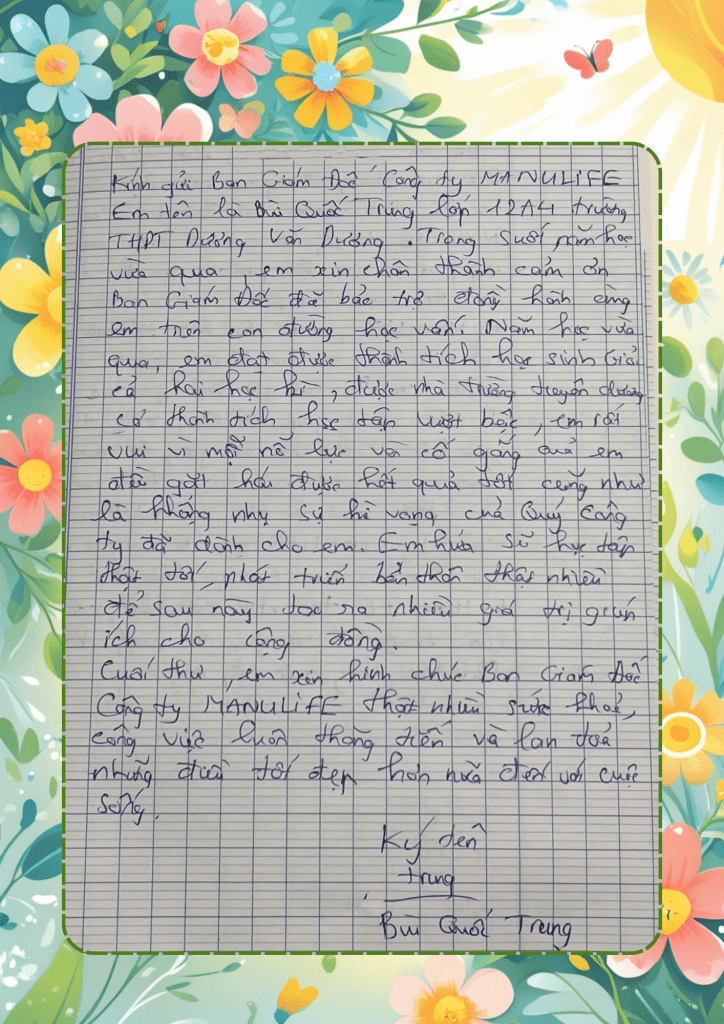 Kính gửi Ban Giám Đốc Công ty MANULIFE
Em tên là Bùi Quốc Trung lớp 12A4 trường
THPT Dương Văn Dương. Trong suốt năm học
vừa qua, em xin chân thành cảm ơn
Ban Giám Đốc đã bảo trợ đồng hành cùng
em trên con đường học vấn. Năm học vừa
qua, em đạt được thành tích học sinh Giỏi
cả hai học kì, được nhà trường tuyên dương
có thành tích học tập vượt bậc, em rất
vui vì mỗi nỗ lực và cố gắng quả em
đều gặt hái được kết quả tốt cũng như
là không phụ sự hi vọng của Quý Công
ty đã dành cho em. Em hứa sẽ học tập
thật tốt, phát triển bản thân thật nhiều
để sau này tạo ra nhiều giá trị giúp
ích cho cộng đồng.
Cuối thư, em xin kính chúc Ban Giám Đốc
Công ty MANULIFE thật nhiều sức khoẻ,
công việc luôn thăng tiến và lan toả
những điều tốt đẹp hơn nữa đến với cuộc
sống.
Ký tên
Trung
Bùi Quốc Trung